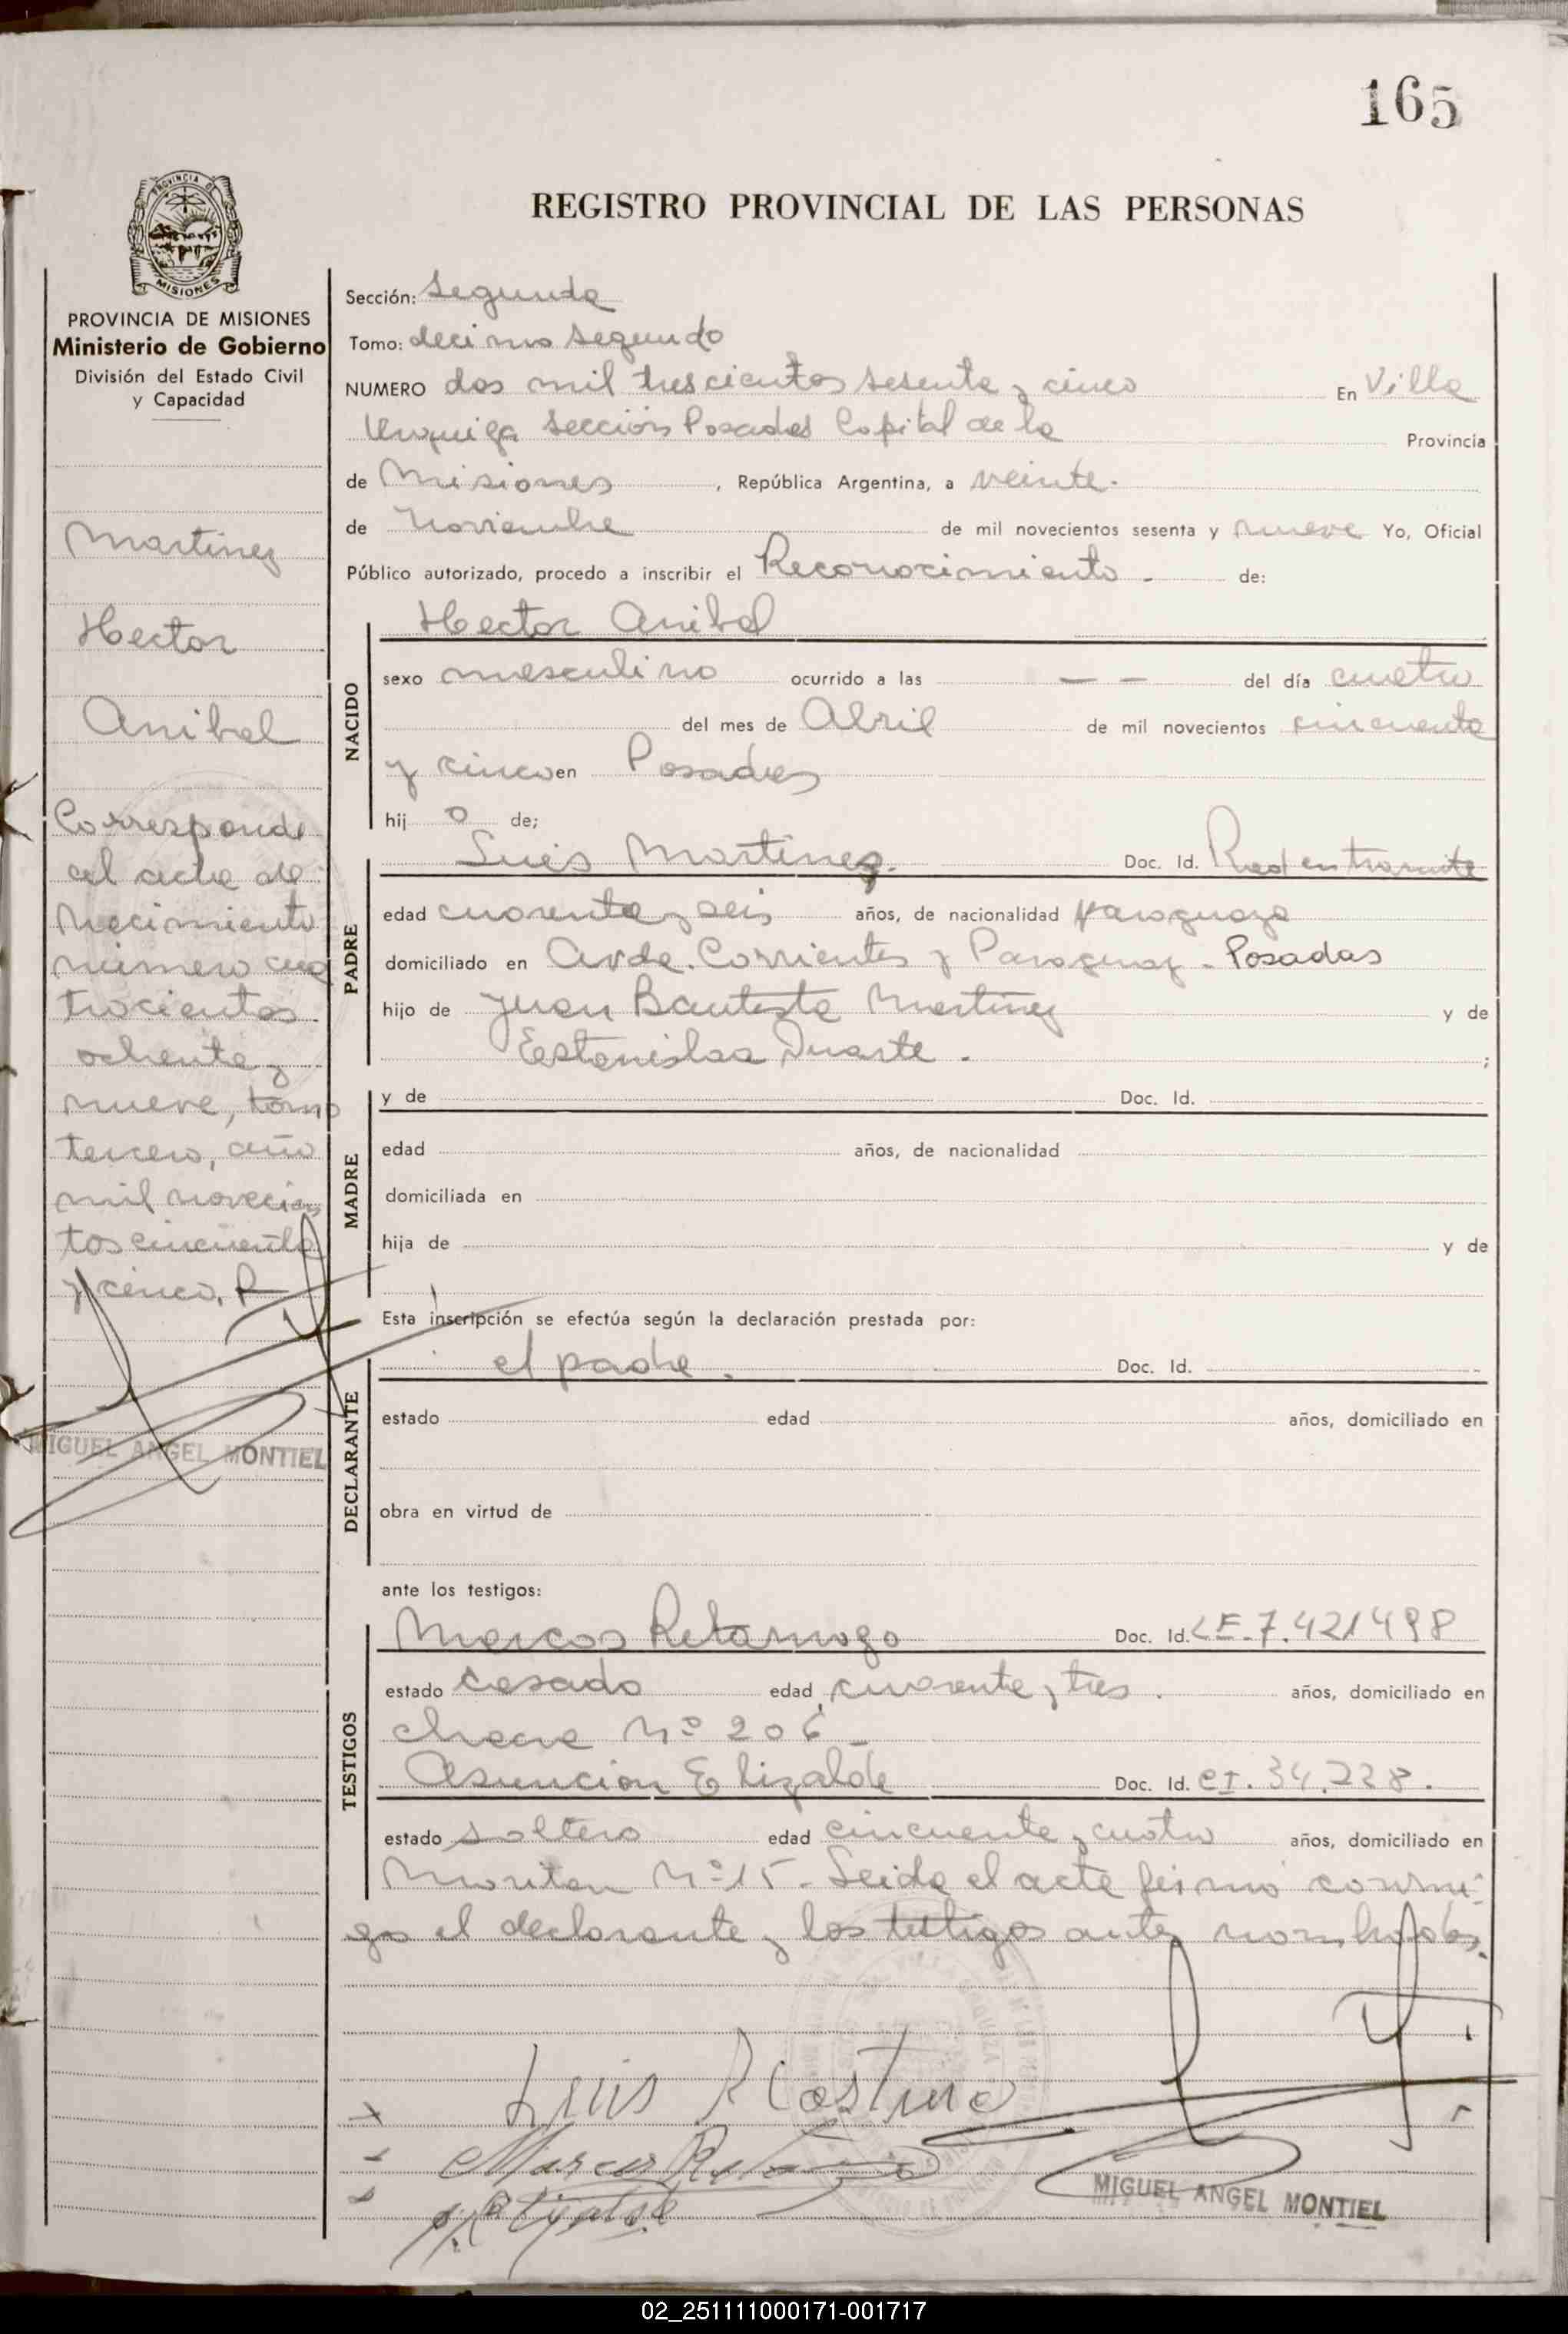 165
REGISTRO PROVINCIAL DE LAS PERSONAS
PROVINCIA DE
MISIONES
PROVINCIA DE MISIONES
Ministerio de Gobierno
División del Estado Civil
y Capacidad
Martinez
Hector
Anibal
Corresponde
al acta de
Nacimiento
número cua
trocientos
ochenta y
nueve, tomo
tercero, año
mil novecien
tos cincuenta
y cinco. R
MIGUEL ANGEL MONTIEL
Sección: Segunda
Tomo: decimo segundo
NUMERO dos mil trescientos sesenta y cinco En Villa
Urquiza Sección Posadas Capital de la Provincia
de Misiones, República Argentina, a veinte.
de Noviembre de mil novecientos sesenta y nueve Yo, Oficial
Público autorizado, procedo a inscribir el Reconocimiento - de:
Hector Anibal
NACIDO
sexo masculino ocurrido a las — — del día cuatro
del mes de Abril de mil novecientos cincuenta
y cinco en Posadas
hij o de;
Luis Martinez. Doc. Id. Rad en tramite
PADRE
edad cuarenta y seis años, de nacionalidad paraguaya
domiciliado en Avda. Corrientes y Paraguay - Posadas
hijo de Juan Bautista Martinez y de
Estanislaa Duarte. ;
MADRE
y de Doc. Id.
edad años, de nacionalidad
domiciliada en
hija de y de
Esta inscripción se efectúa según la declaración prestada por:
DECLARANTE
el padre. Doc. Id.
estado edad años, domiciliado en
obra en virtud de
ante los testigos:
TESTIGOS
Marcos Retamozo Doc. Id. LE-7.421498
estado casado edad cuarenta y tres. años, domiciliado en
Nº 206 -
Asuncion Elizalde Doc. Id. CI. 34.228.
estado soltero edad cincuenta y cuatro años, domiciliado en
Nº 15 - Leida el acta firmó conmi-
go el declarante y los testigos antes nombrados.
Luis
Marcos
MIGUEL ANGEL MONTIEL
02_251111000171-001717